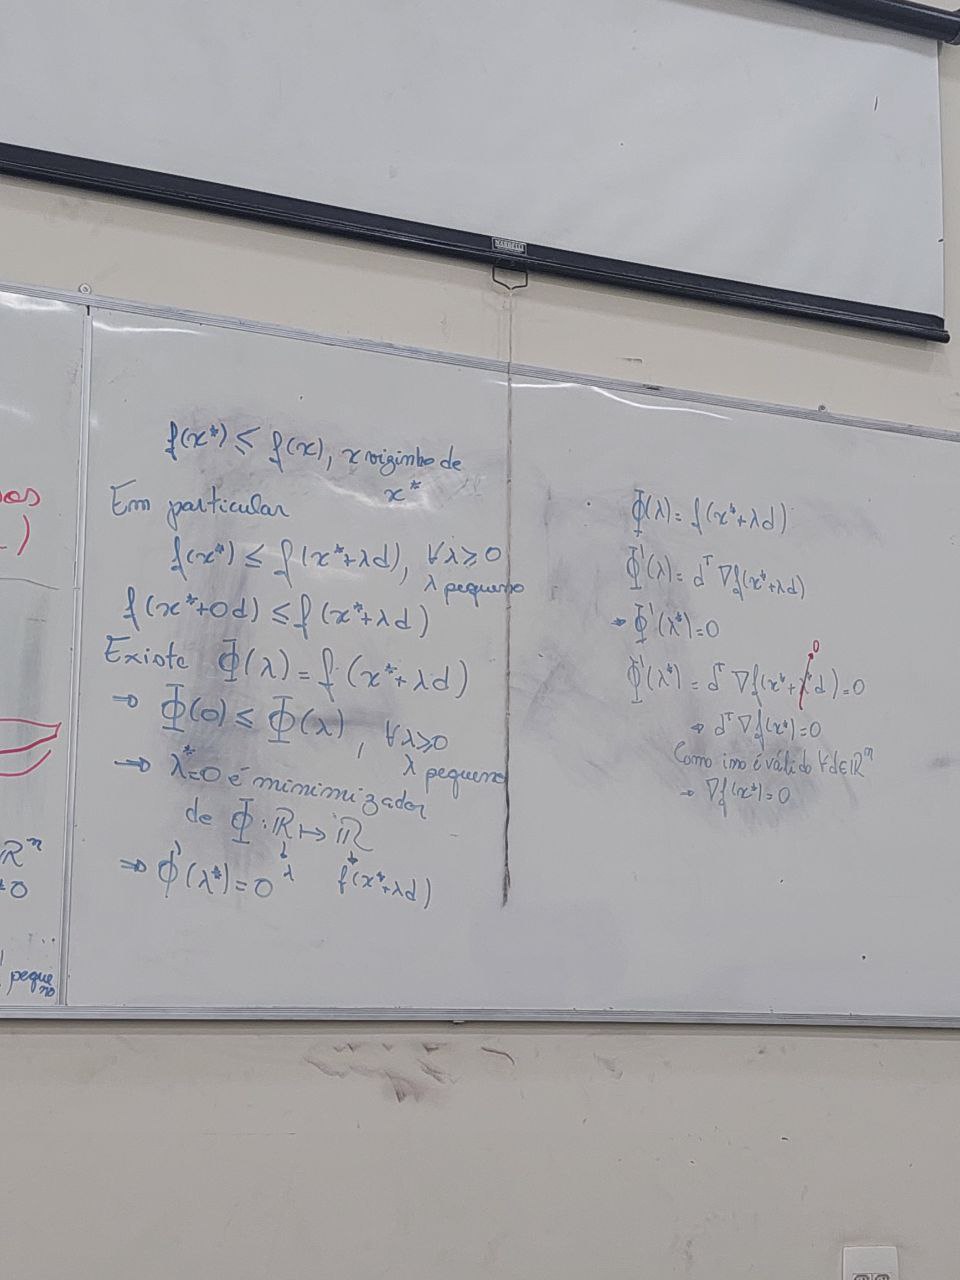 f(x*) ≤ f(x), x vizinho de
x*
Em particular
f(x*) ≤ f(x*+λd), ∀λ≥0
λ pequeno
f(x*+0d) ≤ f(x*+λd)
Existe Φ(λ) = f(x*+λd)
⇒ Φ(0) ≤ Φ(λ), ∀λ≥0
λ pequeno
⇒ λ*=0 é minimizador
de Φ: ℝ ↦ ℝ
λ f(x*+λd)
⇒ Φ'(λ*) = 0
Φ(λ) = f(x*+λd)
Φ'(λ) = dᵀ ∇f(x*+λd)
⇒ Φ'(λ*) = 0
0
Φ'(λ*) = dᵀ ∇f(x*+λ*d) = 0
⇒ dᵀ ∇f(x*) = 0
Como isso é válido ∀d∈ℝⁿ
⇒ ∇f(x*) = 0
ℝⁿ
pequeno